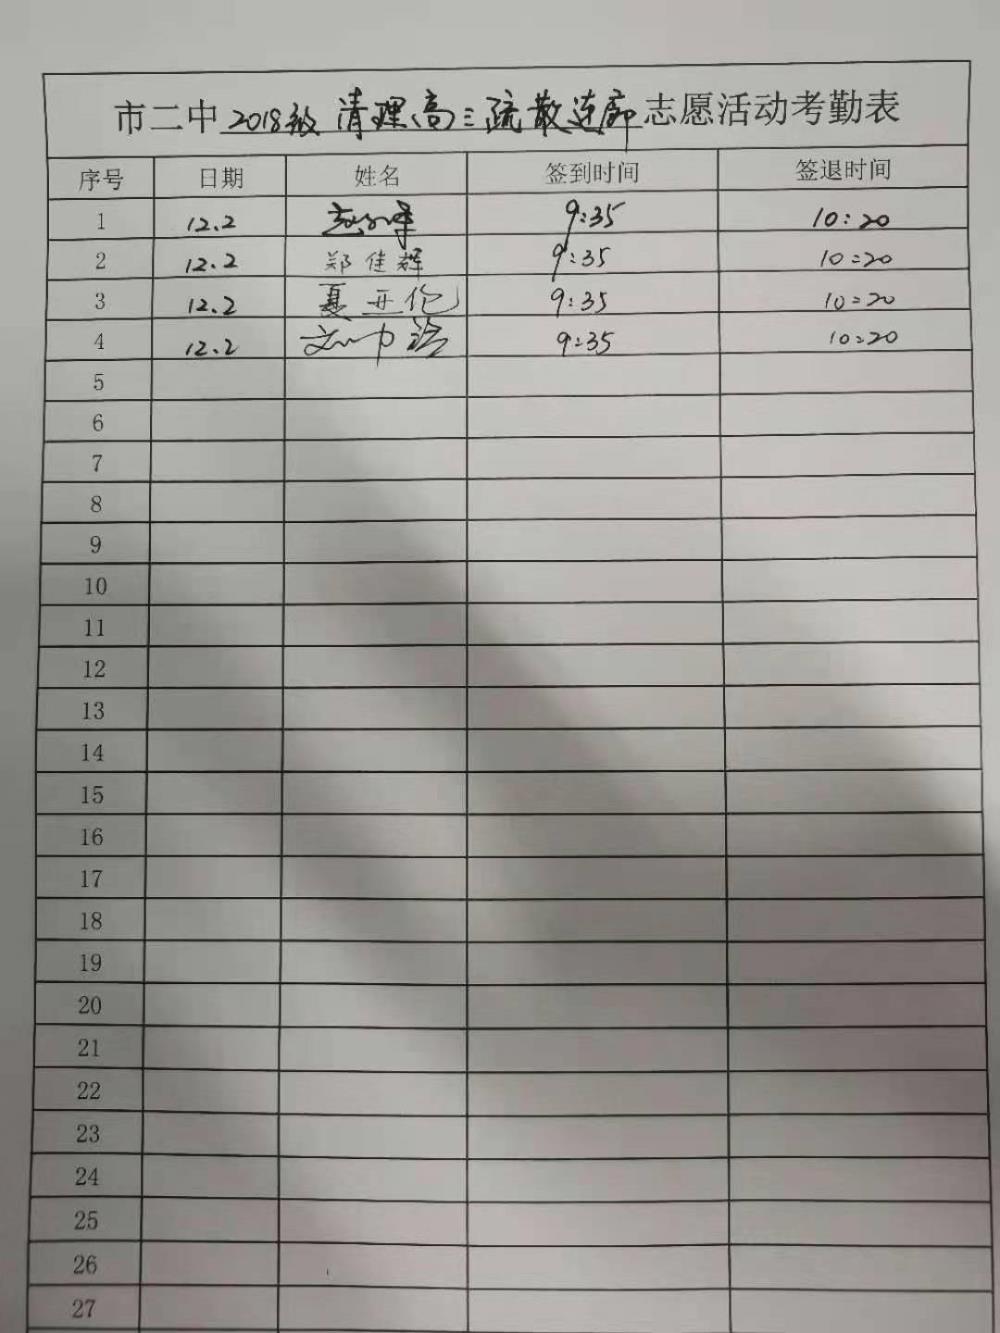 市二中2018级 清理高三疏散连廊志愿活动考勤表
序号 日期 姓名 签到时间 签退时间
1 12.2 9:35 10:20
2 12.2 郑佳辉 9:35 10:20
3 12.2 夏亚伦 9:35 10:20
4 12.2 9:35 10:20
5
6
7
8
9
10
11
12
13
14
15
16
17
18
19
20
21
22
23
24
25
26
27